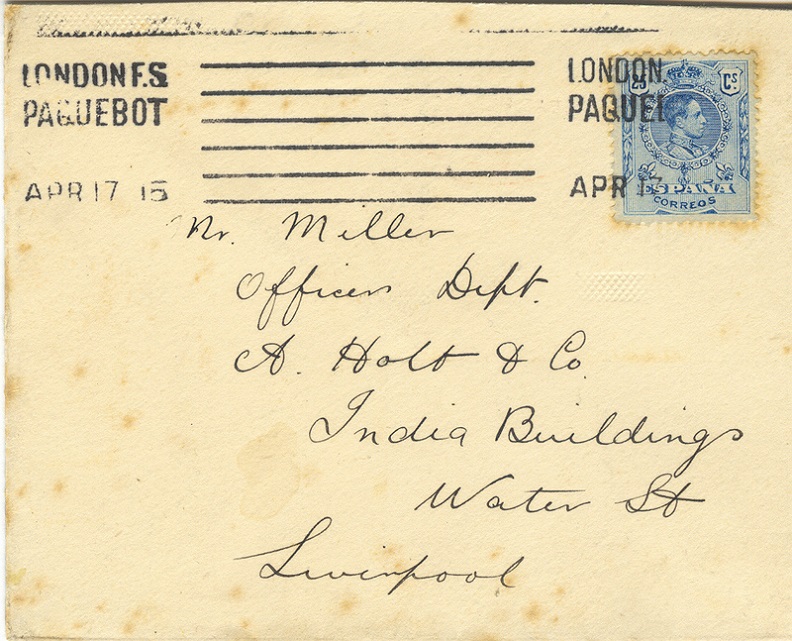 LONDON F.S. LONDON
PAQUEBOT PAQUE
APR 17 15 APR 17
25 Cs
ESPAÑA
CORREOS
Mr. Miller
Officers Dept.
A. Holt & Co.
India Buildings
Water St
Liverpool